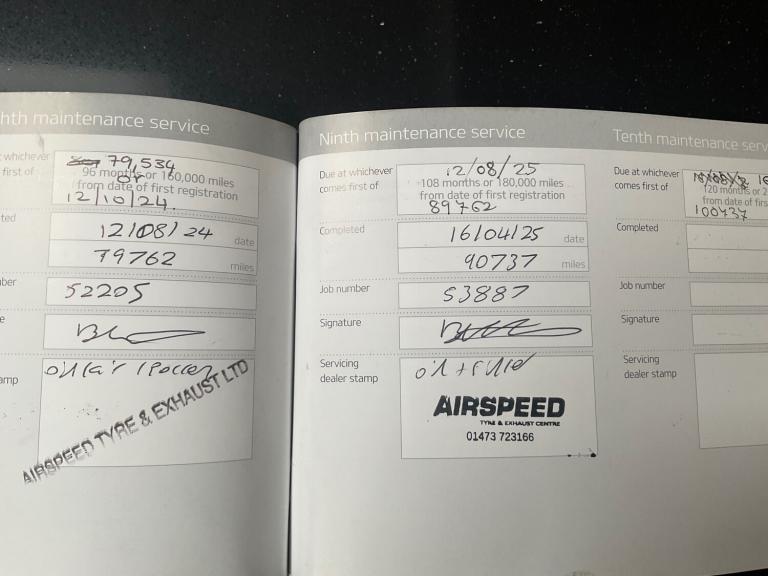 hth maintenance service
whichever
first of
79,534
96 months or 160,000 miles
or
from date of first registration
12/10/24.
ted
12/08/24 date
79762 miles
ber
52205
e
amp
AIRSPEED TYRE & EXHAUST LTD
Ninth maintenance service
Due at whichever
comes first of
12/08/25
108 months or 180,000 miles
from date of first registration
89762
Completed
16/04/25 date
90737 miles
Job number
53887
Signature
Servicing
dealer stamp
oil + filter
AIRSPEED
TYRE & EXHAUST CENTRE
01473 723166
Tenth maintenance serv
Due at whichever
comes first of
120 months or 2
from date of firs
100737
Completed
Job number
Signature
Servicing
dealer stamp